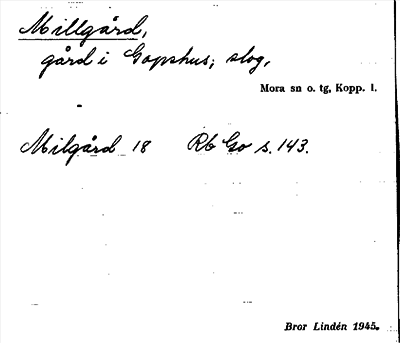 Millgård,
gård i Gopshus; slog,
Mora sn o. tg, Kopp. l.
Milgård 18 Rb Go s. 143.
Bror Lindén 1945.